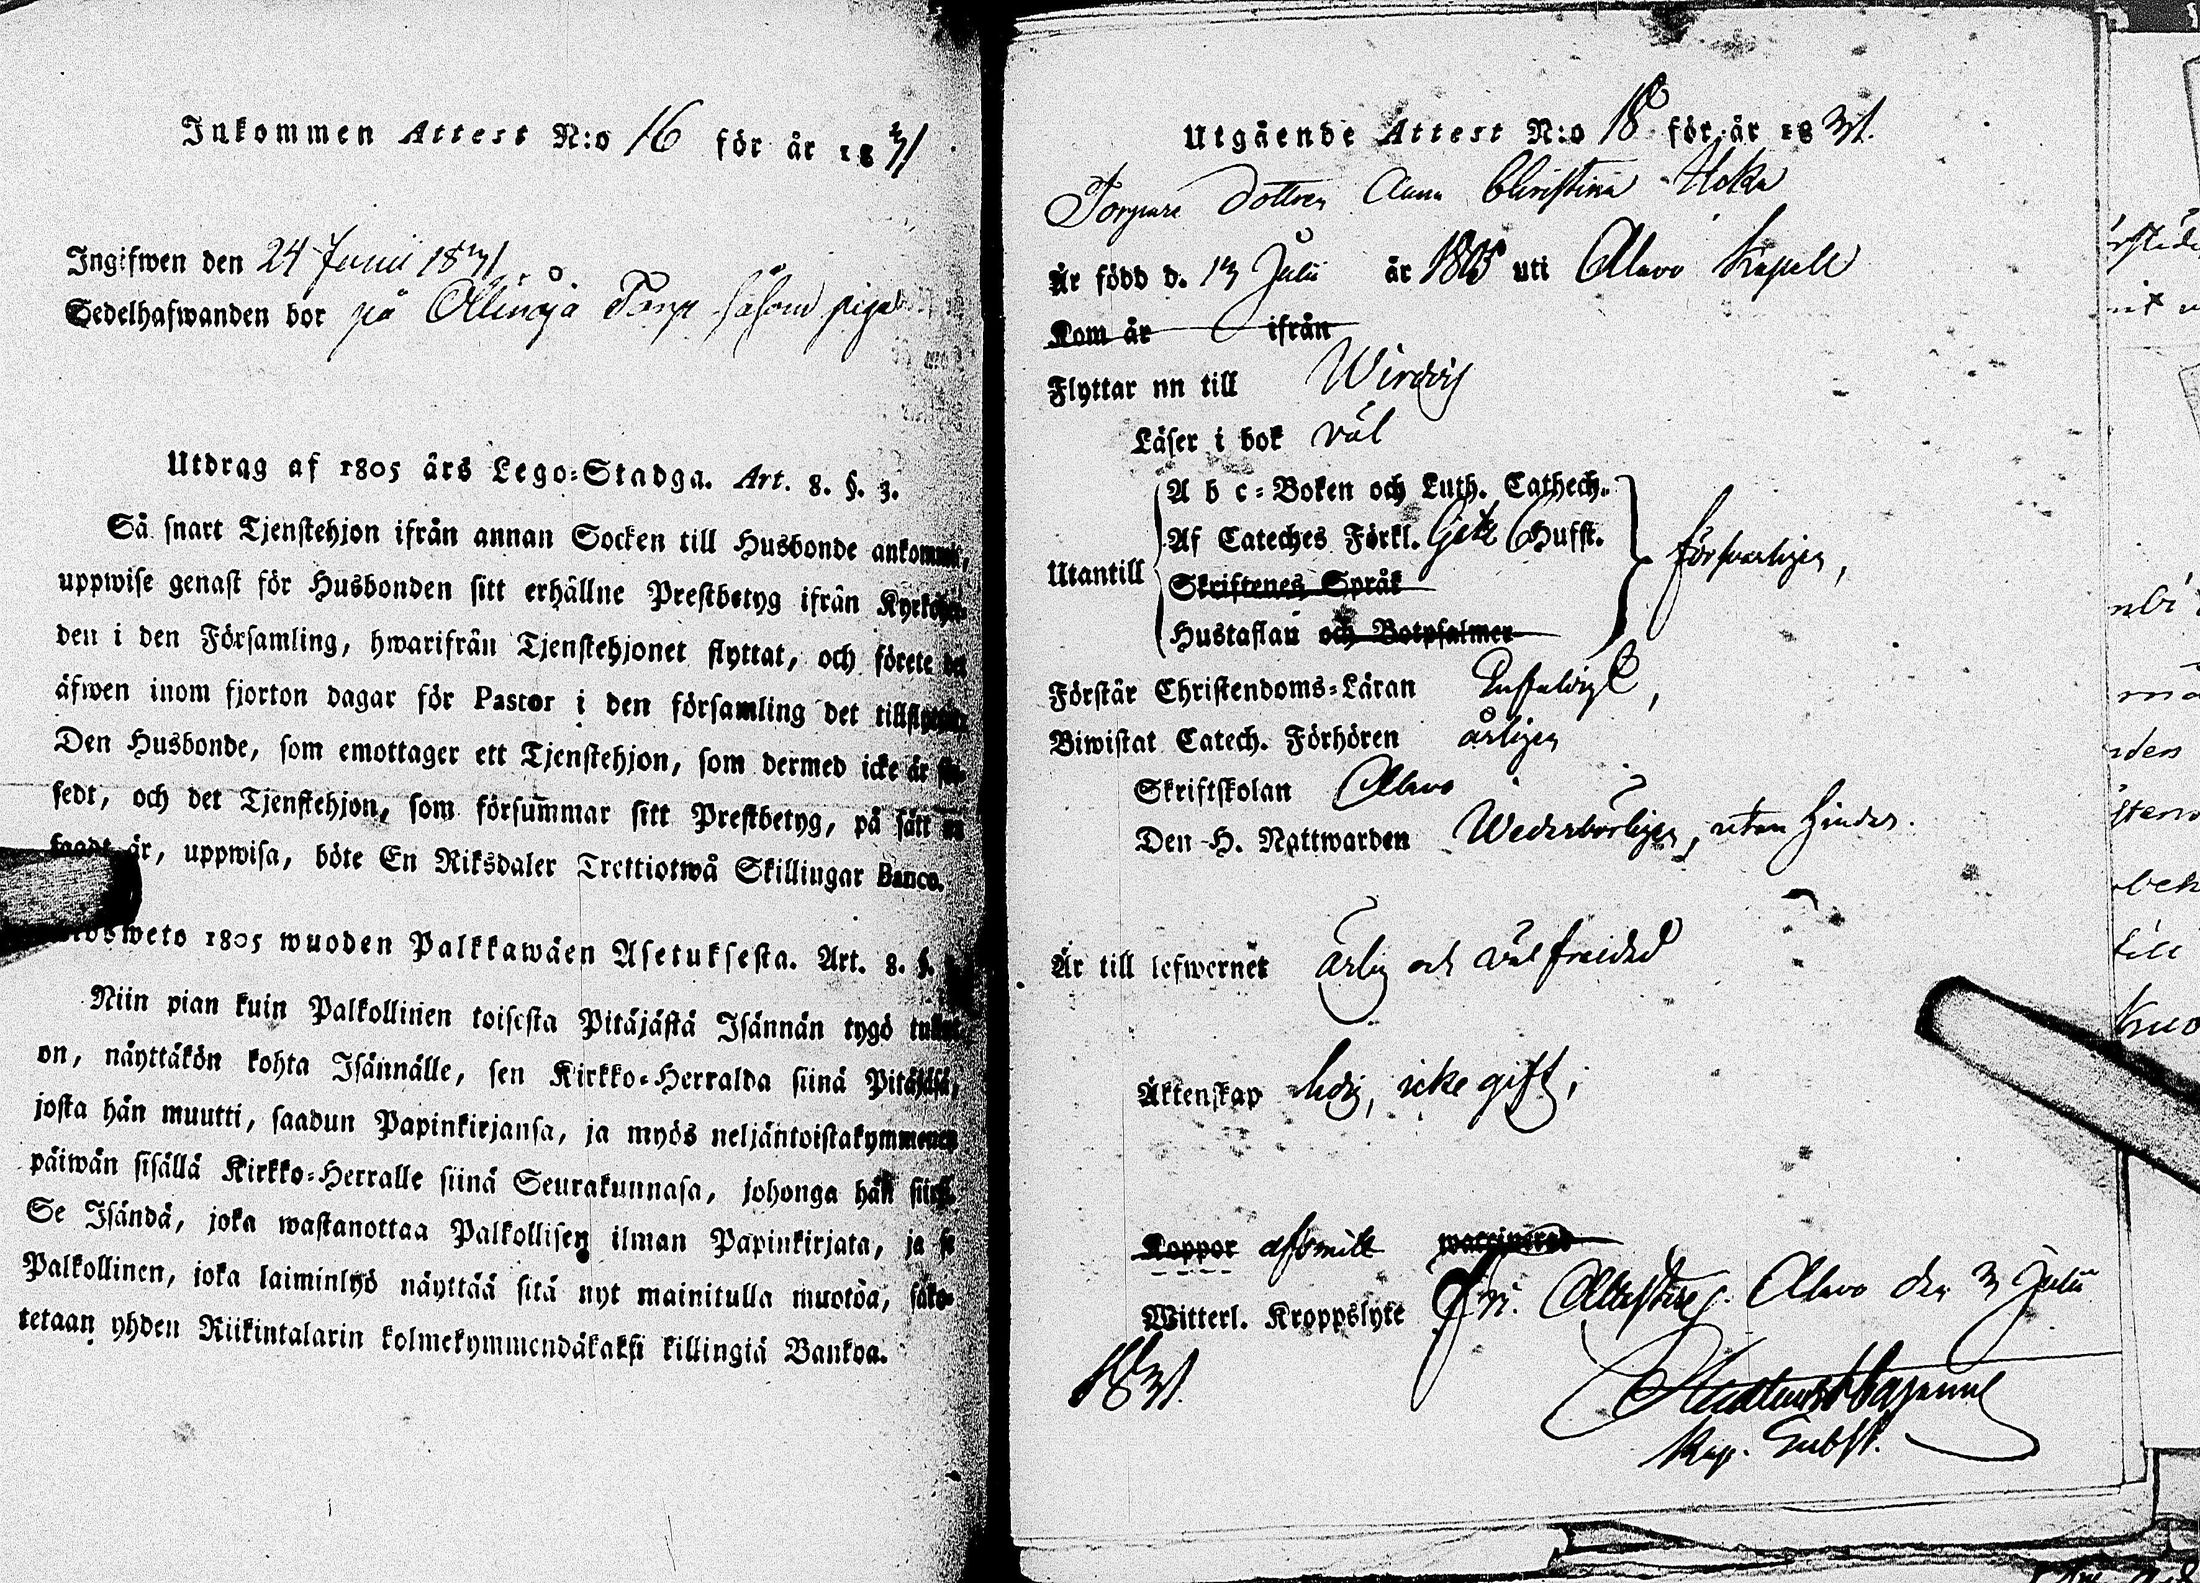 Inkommen Attest N:o 16 för år 1831
Ingifwen den 24 Junii 1831
Sedelhafwanden bor på Torp såsom piga
Utdrag af 1805 års Lego-Stadga. Art. 8. §. 3.
Så snart Tjenstehjon ifrån annan Socken till Husbonde ankommit,
uppwise genast för Husbonden sitt erhållne Prestbetyg ifrån
den i den Församling, hwarifrån Tjenstehjonet flyttat, och förete det
äfwen inom fjorton dagar för Pastor i den församling det
Den Husbonde, som emottager ett Tjenstehjon, som dermed icke är
sedt, och det Tjenstehjon, som försummar sitt Prestbetyg, på sätt
sagdt är, uppwisa, böte En Riksdaler Trettiotwå Skillingar Banco.
1805 wuoden Palkkawäen Asetuksesta. Art. 8. §.
Niin pian kuin Palkollinen toisesta Pitäjästä Isännän tygö tullut
on, näyttäkön kohta Isännälle, sen Kirkko-Herralda siinä Pitäjäsä,
josta hän muutti, saadun Papinkirjansa, ja myös neljäntoistakymmenen
päiwän sisällä Kirkko-Herralle siinä Seurakunnasa, johonga hän siirsi.
Se Isändä, joka wastanottaa Palkollisen ilman Papinkirjata, ja se
Palkollinen, joka laiminlyö näyttää sitä nyt mainitulla muotoa, sako-
tetaan yhden Riikintalarin kolmekymmendäkaksi killingiä Bankoa.
Utgående Attest N:o 18 för år 1831.
Torpare Dottren Anna Christina Hoka
Är född d. 13 Julii år 1805 uti Alavo Kapell
Kom år ifrån
Flyttar nu till Wirdois
Läser i bok väl
A b c-Boken och Luth. Cathech.
Af Cateches Förkl. Hufst.
Utantill försvarligen,
Skriftenes Språk
Hustaflan och Botpsalmer
Förstår Christendoms-Läran Enfaldigt,
Biwistat Catech. Förhören årligen
Skriftskolan Alavo
Den H. Nattwarden Wederbörligen, utan hinder.
Är till lefwernet ärlig och väl frejdad
Äktenskap ledig, icke gift,
Koppor waccinerad
Witterl. Kroppslyte Fri. Attesterar. Alavo den 3 Julii
1831.
Kap. Subst.